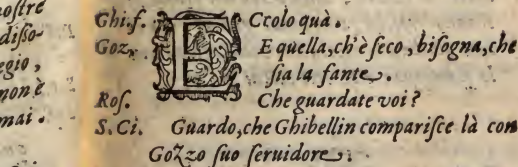 noſtre
diſſo-
egio,
non è
mai.
Ghi.ſ. ECcolo quà.
Goz. E quella, ch'è ſeco, biſogna, che
ſia la fante.
Roſ. Che guardate voi?
S.Ci. Guardo, che Ghibellin compariſce là con
Gozzo ſuo ſeruidore.